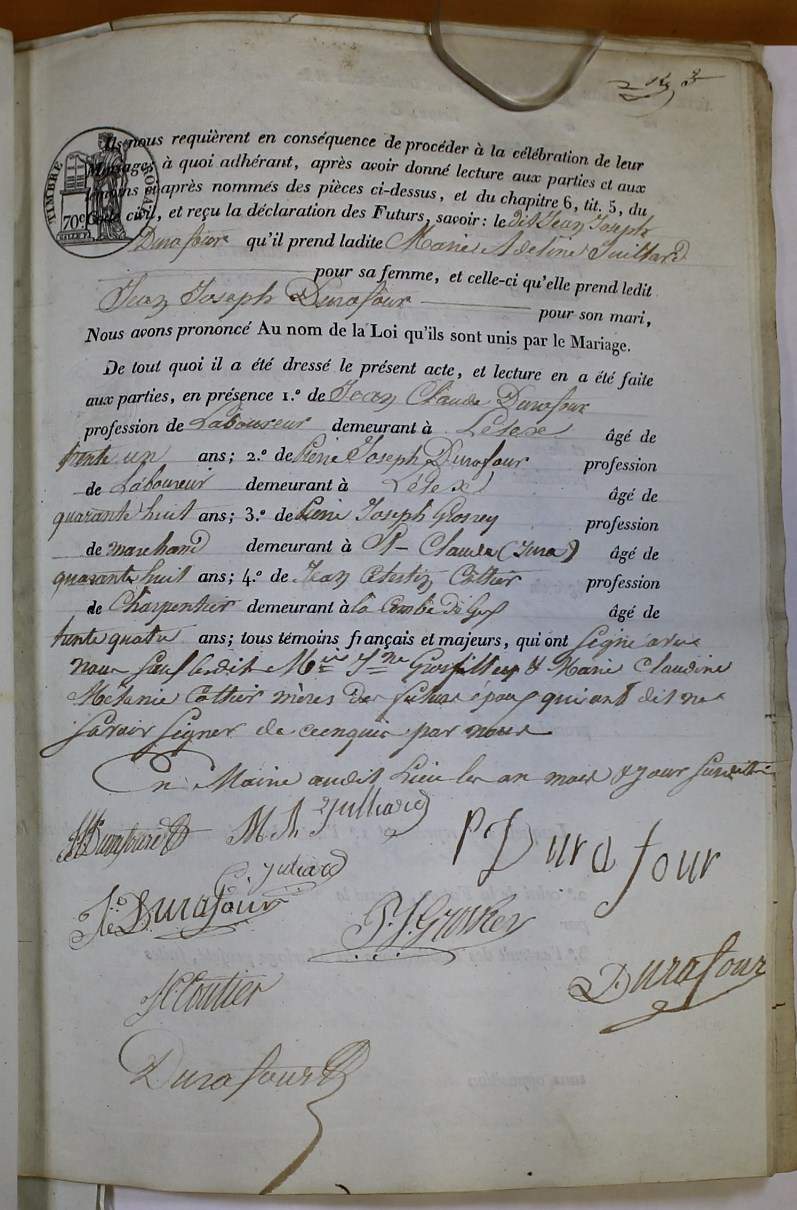 TIMBRE ROYAL
70 c
Ils nous requièrent en conséquence de procéder à la célébration de leur
Mariage; à quoi adhérant, après avoir donné lecture aux parties et aux
témoins ci-après nommés des pièces ci-dessus, et du chapitre 6, tit. 5, du
Code civil, et reçu la déclaration des Futurs, savoir: le dit Jean Joseph
Durafour qu'il prend ladite Marie Adeline Juillard
pour sa femme, et celle-ci qu'elle prend ledit
Jean Joseph Durafour pour son mari,
Nous avons prononcé Au nom de la Loi qu'ils sont unis par le Mariage.
De tout quoi il a été dressé le présent acte, et lecture en a été faite
aux parties, en présence 1.º de Jean Claude Durafour
profession de Laboureur demeurant à Lélex âgé de
trente un ans; 2.º de Pierre Joseph Durafour profession
de Laboureur demeurant à Lélex âgé de
quarante huit ans; 3.º de Pierre Joseph Grosrey profession
de marchand demeurant à St Claude (Jura) âgé de
quarante huit ans; 4.º de Jean Célestin Cottier profession
de Charpentier demeurant à la Combe de Gex âgé de
trente quatre ans; tous témoins français et majeurs, qui ont signé avec
nous sauf lesdites Mie Jne Grosfilley & Marie Claudine
Mélanie Cottier mères des futurs époux qui ont dit ne
savoir signer de ce enquis par nous
En Mairie audit Lieu les an mois & jour susdits
JJ Durafour M A Julliard P Durafour
C. Juliard
Jh Durafour P. J. Grosrey
Durafour
JC Coutier
Durafour